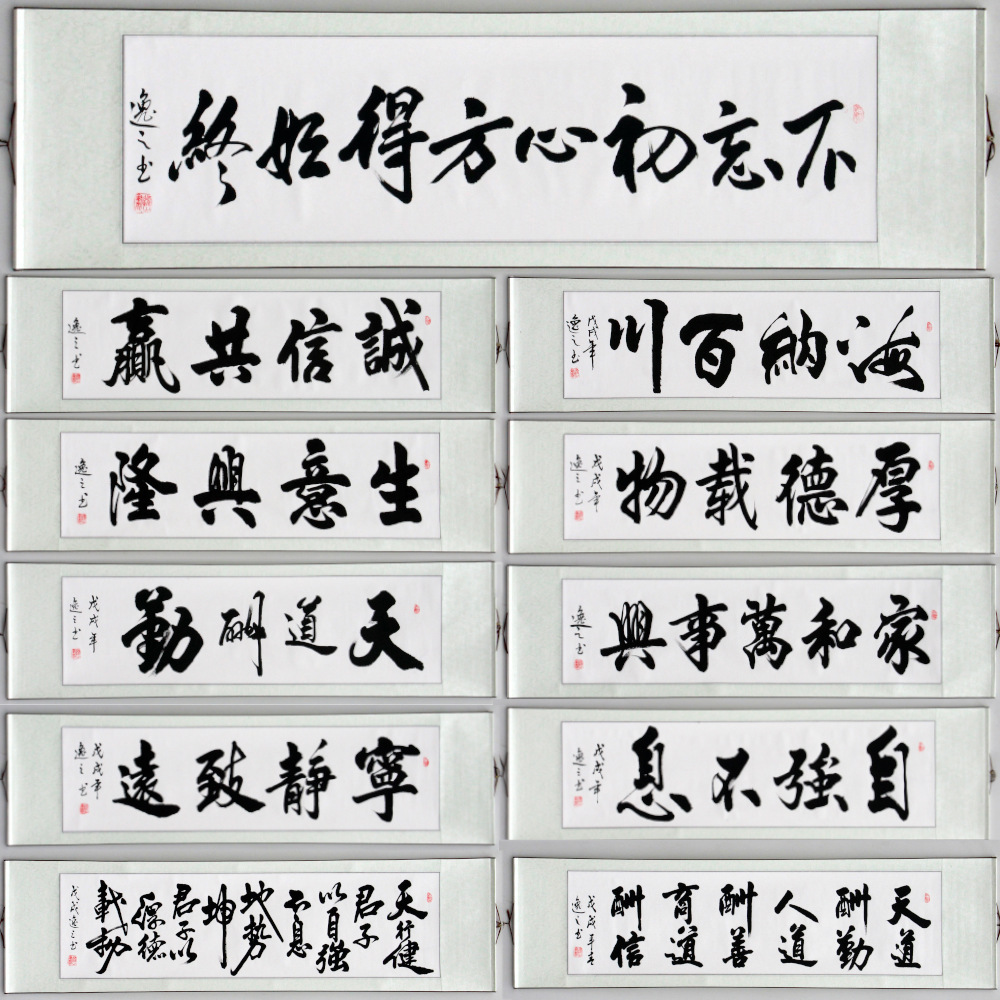 不忘初心方得始終
逸之书
誠信共贏
逸之书
海納百川
戊戌年
逸之书
生意興隆
逸之书
厚德載物
戊戌年
逸之书
天道酬勤
戊戌年
逸之书
家和萬事興
逸之书
寧靜致遠
戊戌年
逸之书
自強不息
戊戌年
逸之书
天行健
君子
以自強
不息
地勢
坤
君子以
厚德
載物
戊戌逸之书
天道
酬勤
人道
酬善
商道
酬信
戊戌年
逸之书